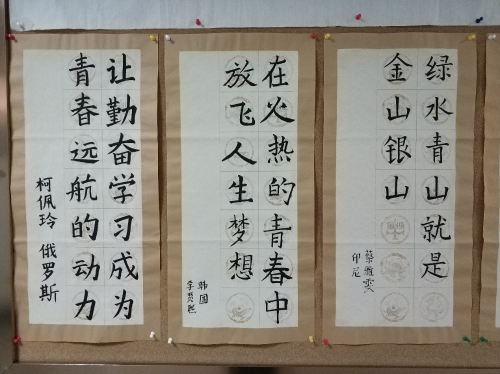 让勤奋学习成为
青春远航的动力
柯佩玲 俄罗斯
在火热的青春中
放飞人生梦想
韩国
绿水青山就是
金山银山
印尼